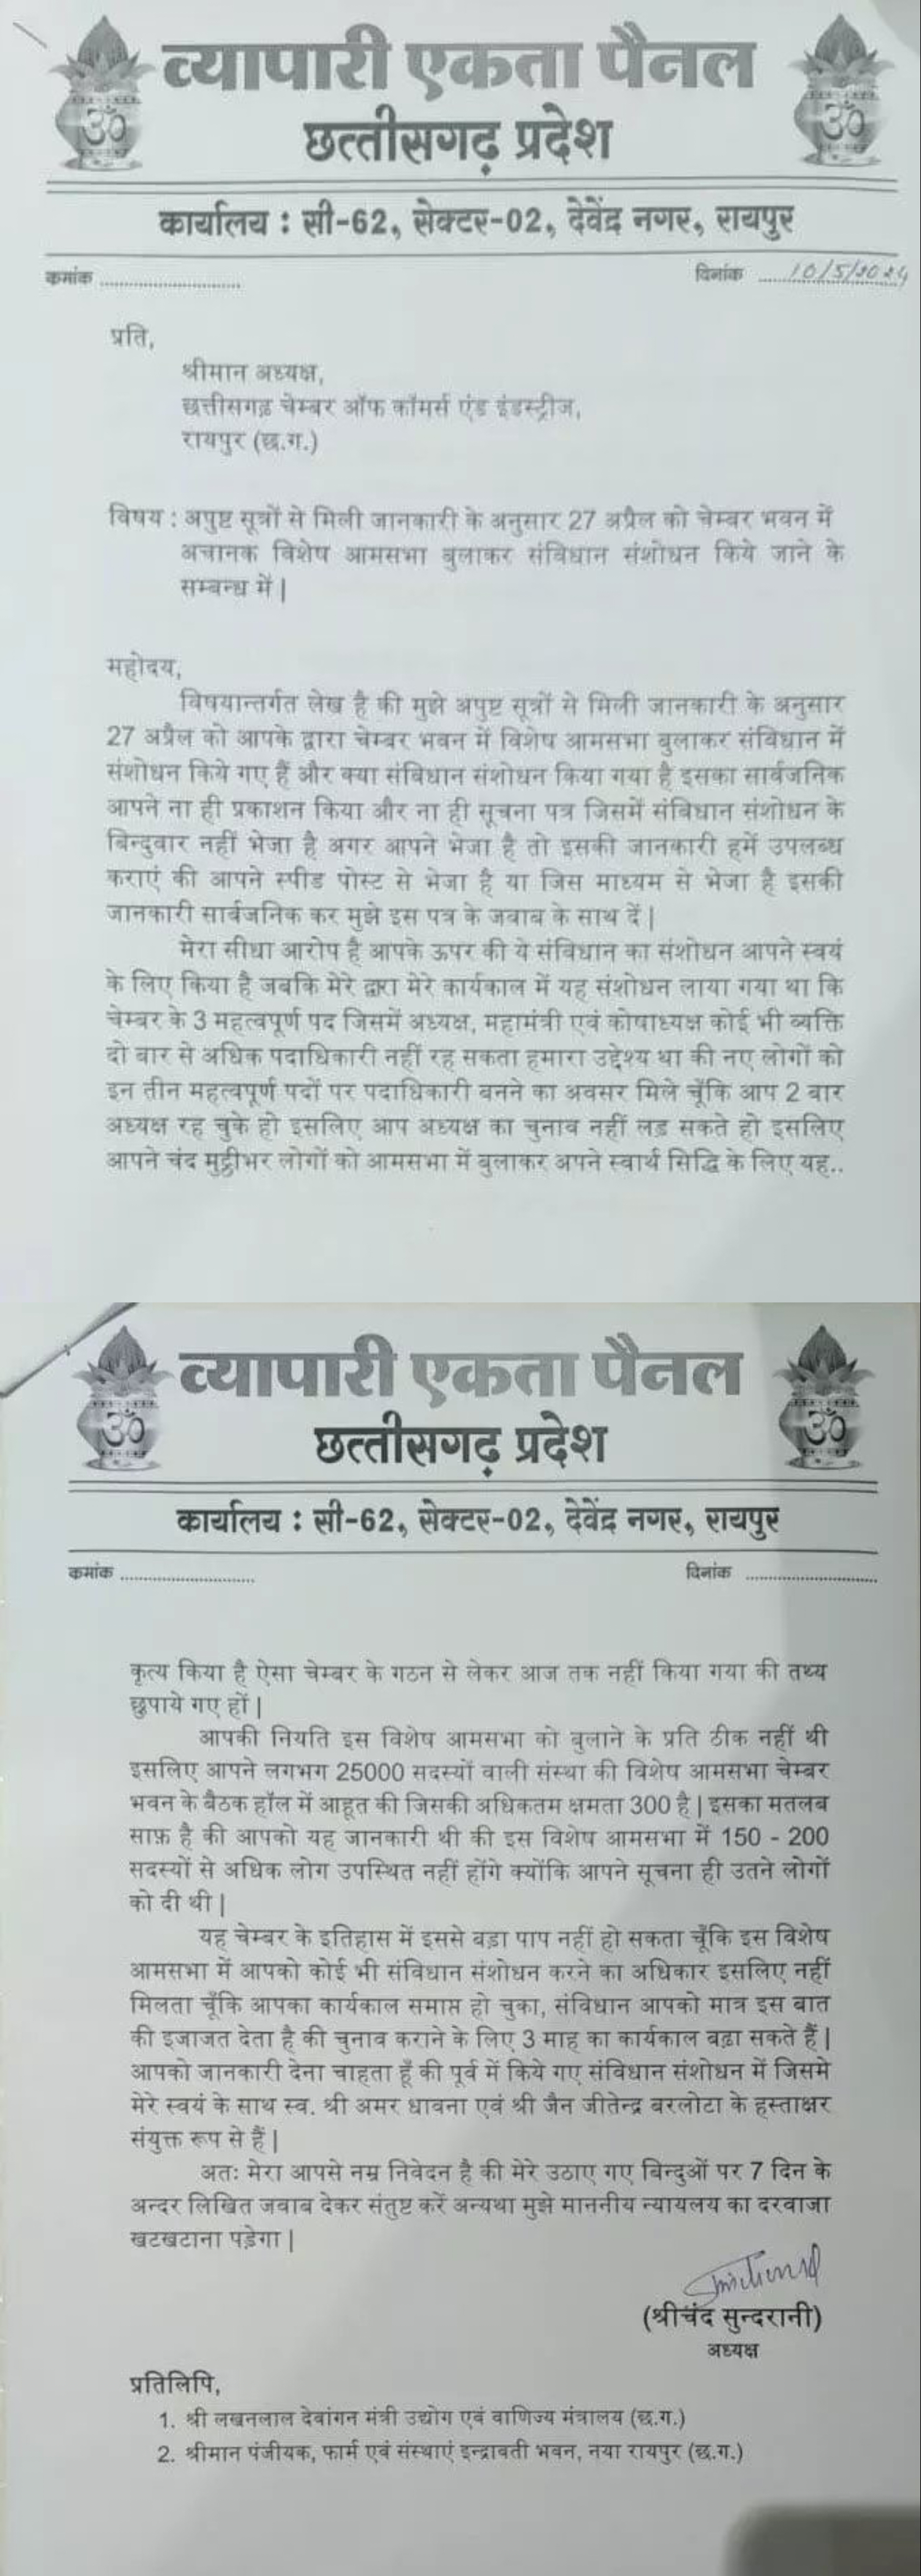 व्यापारी एकता पैनल
छत्तीसगढ़ प्रदेश
कार्यालय : सी-62, सेक्टर-02, देवेंद्र नगर, रायपुर
कमांक ..............................
दिनांक ....10/5/2024
प्रति,
श्रीमान अध्यक्ष,
छत्तीसगढ़ चेम्बर ऑफ कॉमर्स एंड इंडस्ट्रीज,
रायपुर (छ.ग.)
विषय : अपुष्ट सूत्रों से मिली जानकारी के अनुसार 27 अप्रैल को चेम्बर भवन में
अचानक विशेष आमसभा बुलाकर संविधान संशोधन किये जाने के
सम्बन्ध में |
महोदय,
विषयान्तर्गत लेख है की मुझे अपुष्ट सूत्रों से मिली जानकारी के अनुसार
27 अप्रैल को आपके द्वारा चेम्बर भवन में विशेष आमसभा बुलाकर संविधान में
संशोधन किये गए हैं और क्या संविधान संशोधन किया गया है इसका सार्वजनिक
आपने ना ही प्रकाशन किया और ना ही सूचना पत्र जिसमें संविधान संशोधन के
बिन्दुवार नहीं भेजा है अगर आपने भेजा है तो इसकी जानकारी हमें उपलब्ध
कराएं की आपने स्पीड पोस्ट से भेजा है या जिस माध्यम से भेजा है इसकी
जानकारी सार्वजनिक कर मुझे इस पत्र के जवाब के साथ दें |
मेरा सीधा आरोप है आपके ऊपर की ये संविधान का संशोधन आपने स्वयं
के लिए किया है जबकि मेरे द्वारा मेरे कार्यकाल में यह संशोधन लाया गया था कि
चेम्बर के 3 महत्वपूर्ण पद जिसमें अध्यक्ष, महामंत्री एवं कोषाध्यक्ष कोई भी व्यक्ति
दो बार से अधिक पदाधिकारी नहीं रह सकता हमारा उद्देश्य था की नए लोगों को
इन तीन महत्वपूर्ण पदों पर पदाधिकारी बनने का अवसर मिले चूँकि आप 2 बार
अध्यक्ष रह चुके हो इसलिए आप अध्यक्ष का चुनाव नहीं लड़ सकते हो इसलिए
आपने चंद मुट्ठीभर लोगों को आमसभा में बुलाकर अपने स्वार्थ सिद्धि के लिए यह..
व्यापारी एकता पैनल
छत्तीसगढ़ प्रदेश
कार्यालय : सी-62, सेक्टर-02, देवेंद्र नगर, रायपुर
कमांक ..............................
दिनांक ..............................
कृत्य किया है ऐसा चेम्बर के गठन से लेकर आज तक नहीं किया गया की तथ्य
छुपाये गए हों |
आपकी नियति इस विशेष आमसभा को बुलाने के प्रति ठीक नहीं थी
इसलिए आपने लगभग 25000 सदस्यों वाली संस्था की विशेष आमसभा चेम्बर
भवन के बैठक हॉल में आहूत की जिसकी अधिकतम क्षमता 300 है | इसका मतलब
साफ़ है की आपको यह जानकारी थी की इस विशेष आमसभा में 150 - 200
सदस्यों से अधिक लोग उपस्थित नहीं होंगे क्योंकि आपने सूचना ही उतने लोगों
को दी थी |
यह चेम्बर के इतिहास में इससे बड़ा पाप नहीं हो सकता चूँकि इस विशेष
आमसभा में आपको कोई भी संविधान संशोधन करने का अधिकार इसलिए नहीं
मिलता चूँकि आपका कार्यकाल समाप्त हो चुका, संविधान आपको मात्र इस बात
की इजाजत देता है की चुनाव कराने के लिए 3 माह का कार्यकाल बढ़ा सकते हैं |
आपको जानकारी देना चाहता हूँ की पूर्व में किये गए संविधान संशोधन में जिसमे
मेरे स्वयं के साथ स्व. श्री अमर धावना एवं श्री जैन जीतेन्द्र बरलोटा के हस्ताक्षर
संयुक्त रूप से हैं |
अतः मेरा आपसे नम्र निवेदन है की मेरे उठाए गए बिन्दुओं पर 7 दिन के
अन्दर लिखित जवाब देकर संतुष्ट करें अन्यथा मुझे माननीय न्यायलय का दरवाजा
खटखटाना पड़ेगा |
(श्रीचंद सुन्दरानी)
अध्यक्ष
प्रतिलिपि,
1. श्री लखनलाल देवांगन मंत्री उद्योग एवं वाणिज्य मंत्रालय (छ.ग.)
2. श्रीमान पंजीयक, फार्म एवं संस्थाएं इन्द्रावती भवन, नया रायपुर (छ.ग.)